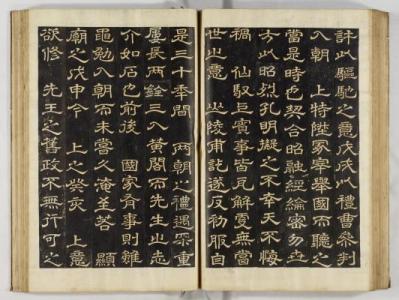 許以驅馳之意戊戌以禮曹參判
入朝 上特陞冢宰擧國而聽之
當是時也契合昭融經綸密勿世
方以昭烈孔明擬之不幸天不悔
禍 仙馭賓事皆瓦解無當
世之意 山陵甫訖遂反初服自
是三十秊間 兩朝之禮遇深重
屢長兩銓三入黃閣而先生之志
介如石也前後 國家有事則雖
黽勉入朝而未嘗久淹至若 顯
廟之戊申今 上之癸亥 上意
欲修 先王之舊政不無許可之